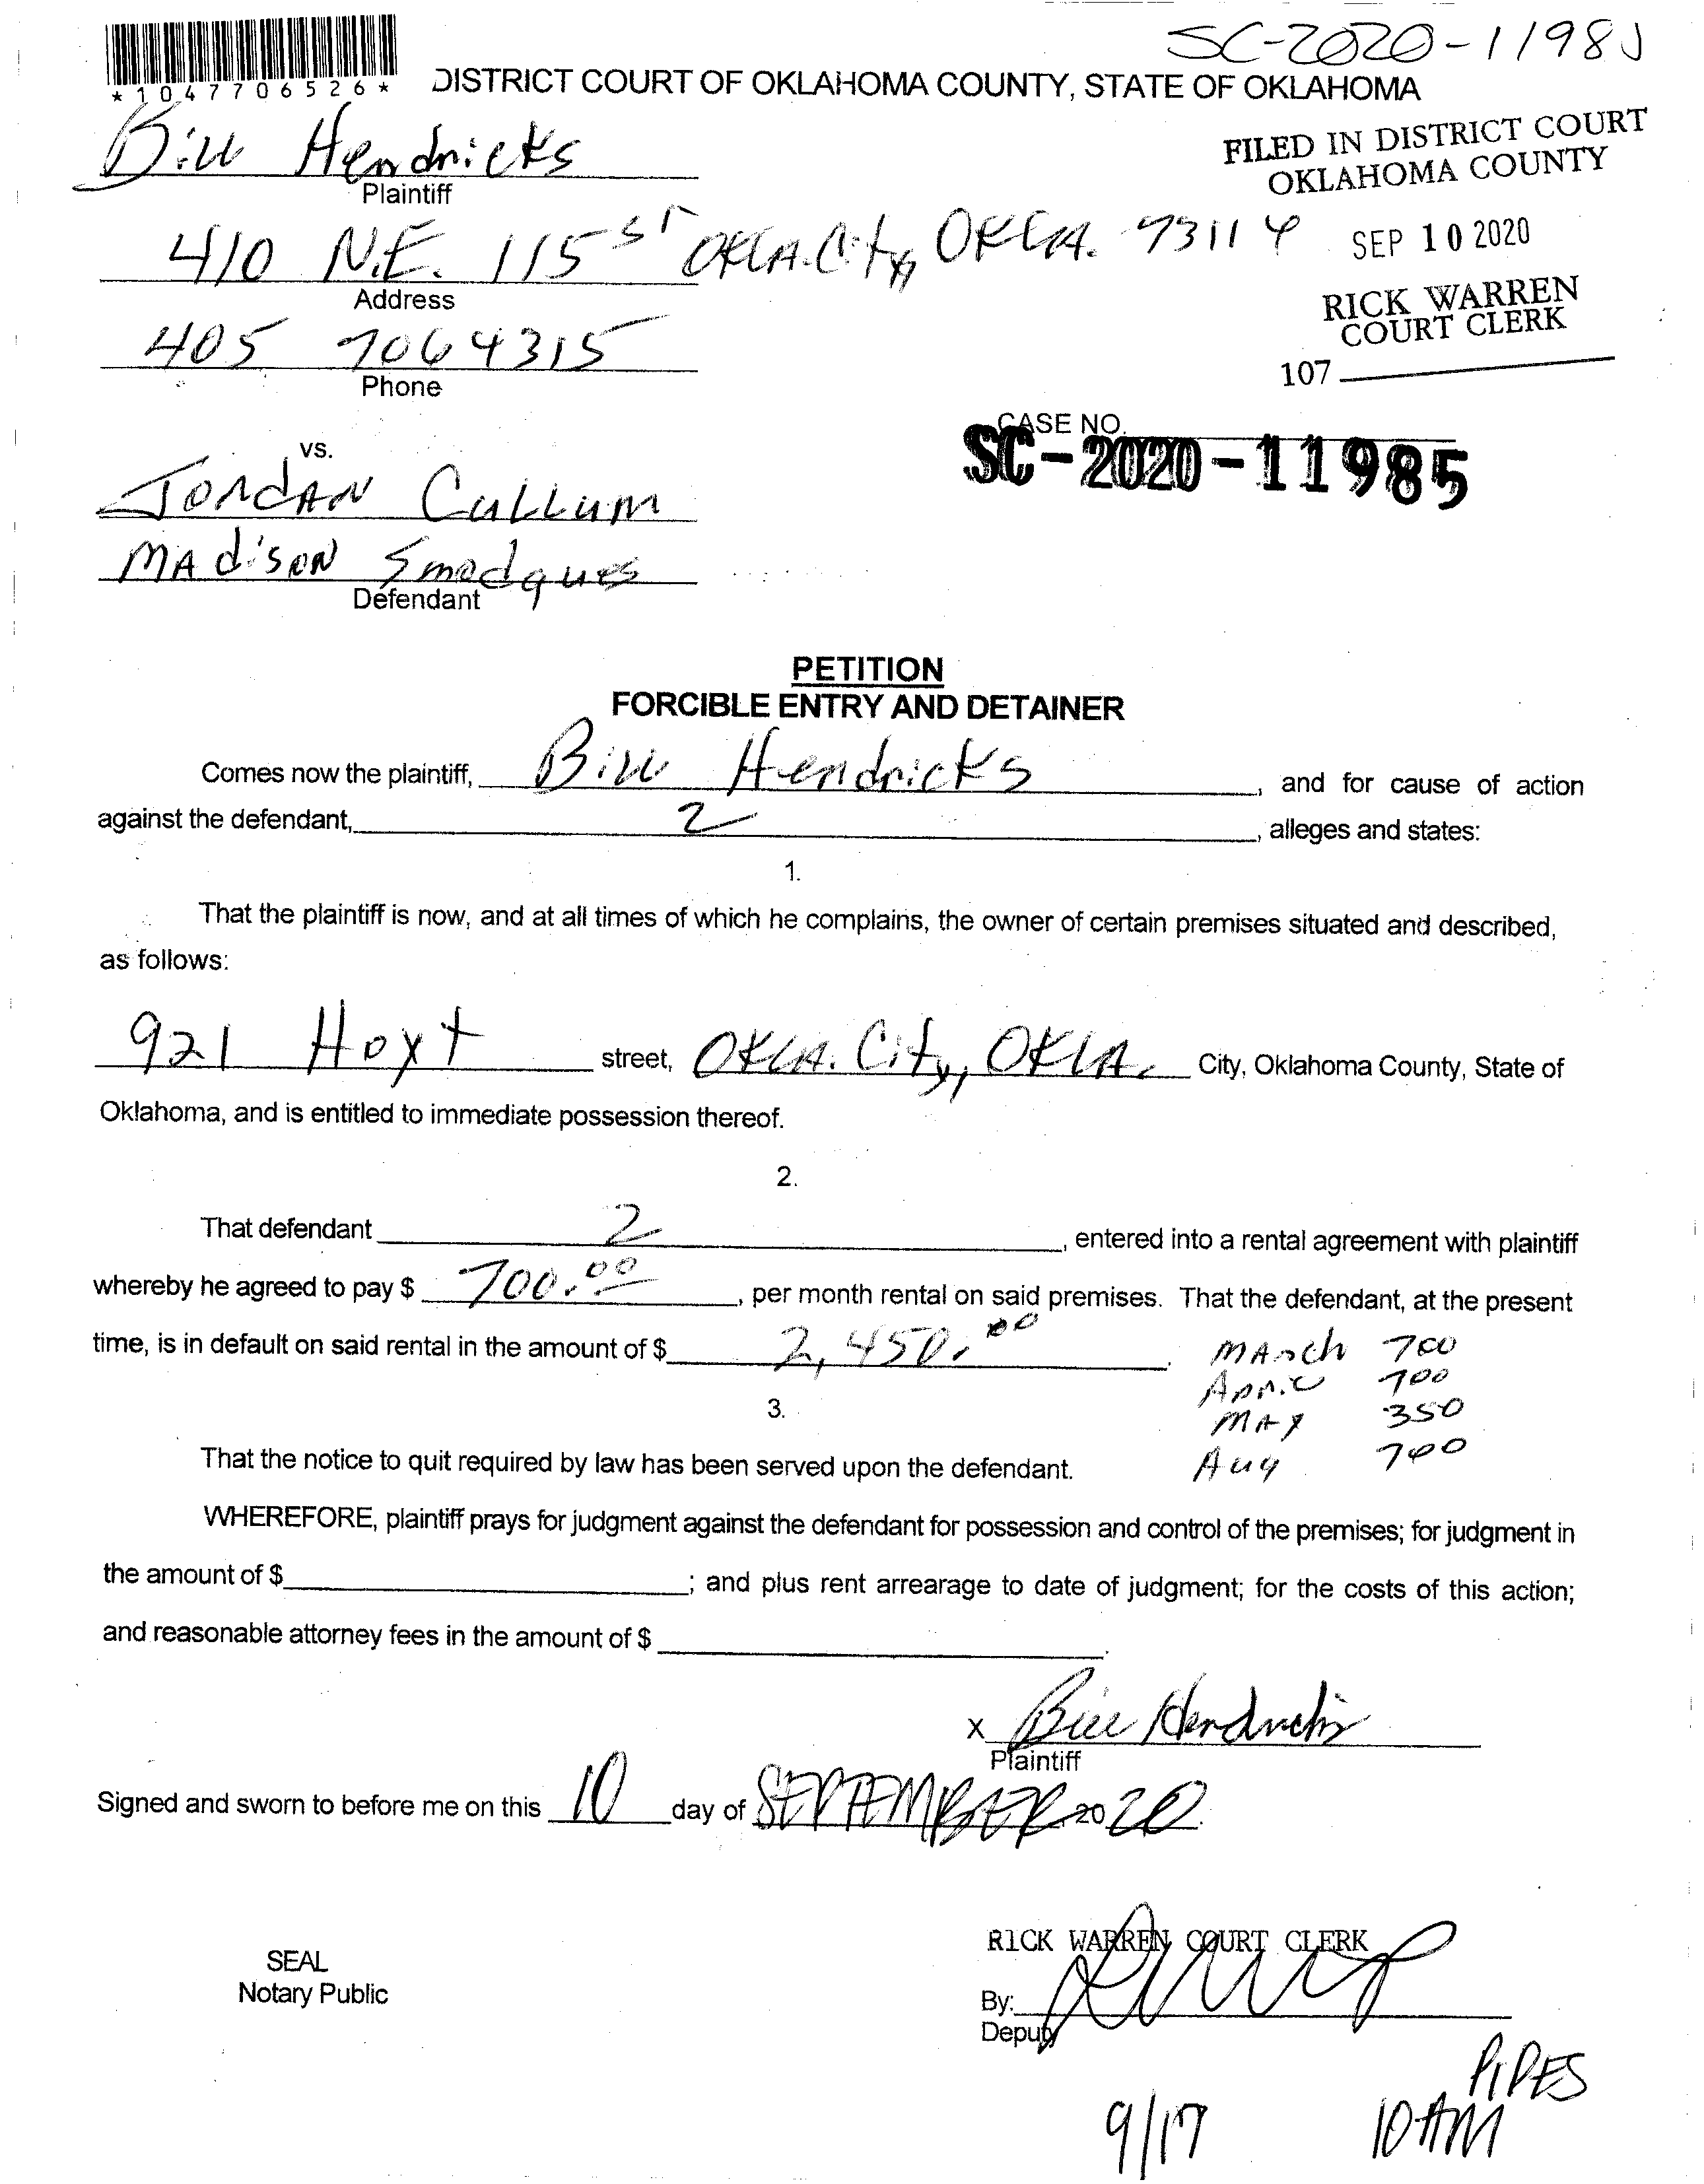 SC-2020-11985
*1047706526*
DISTRICT COURT OF OKLAHOMA COUNTY, STATE OF OKLAHOMA
Bill Hendricks
Plaintiff
FILED IN DISTRICT COURT
OKLAHOMA COUNTY
410 N.E. 115 st OKLA. City, OKLA. 73114
SEP 10 2020
Address
RICK WARREN
COURT CLERK
405 7064315
Phone
107
CASE NO.
SC-2020-11985
vs.
JORDAN CULLUM
MADISON Smedques
Defendant
PETITION
FORCIBLE ENTRY AND DETAINER
Comes now the plaintiff, Bill Hendricks, and for cause of action
against the defendant, 2, alleges and states:
1.
That the plaintiff is now, and at all times of which he complains, the owner of certain premises situated and described,
as follows:
921 Hoyt street, OKLA. City, OKLA. City, Oklahoma County, State of
Oklahoma, and is entitled to immediate possession thereof.
2.
That defendant 2, entered into a rental agreement with plaintiff
whereby he agreed to pay $ 700.00, per month rental on said premises. That the defendant, at the present
time, is in default on said rental in the amount of $ 2,450.00.
MARCH 700
April 700
3.
MAY 350
That the notice to quit required by law has been served upon the defendant.
Aug 700
WHEREFORE, plaintiff prays for judgment against the defendant for possession and control of the premises; for judgment in
the amount of $; and plus rent arrearage to date of judgment; for the costs of this action;
and reasonable attorney fees in the amount of $.
X Bill Hendricks
Plaintiff
Signed and sworn to before me on this 10 day of SEPTEMBER 20 20.
SEAL
Notary Public
RICK WARREN COURT CLERK
By:
Deputy
PIPES
9/17 10AM